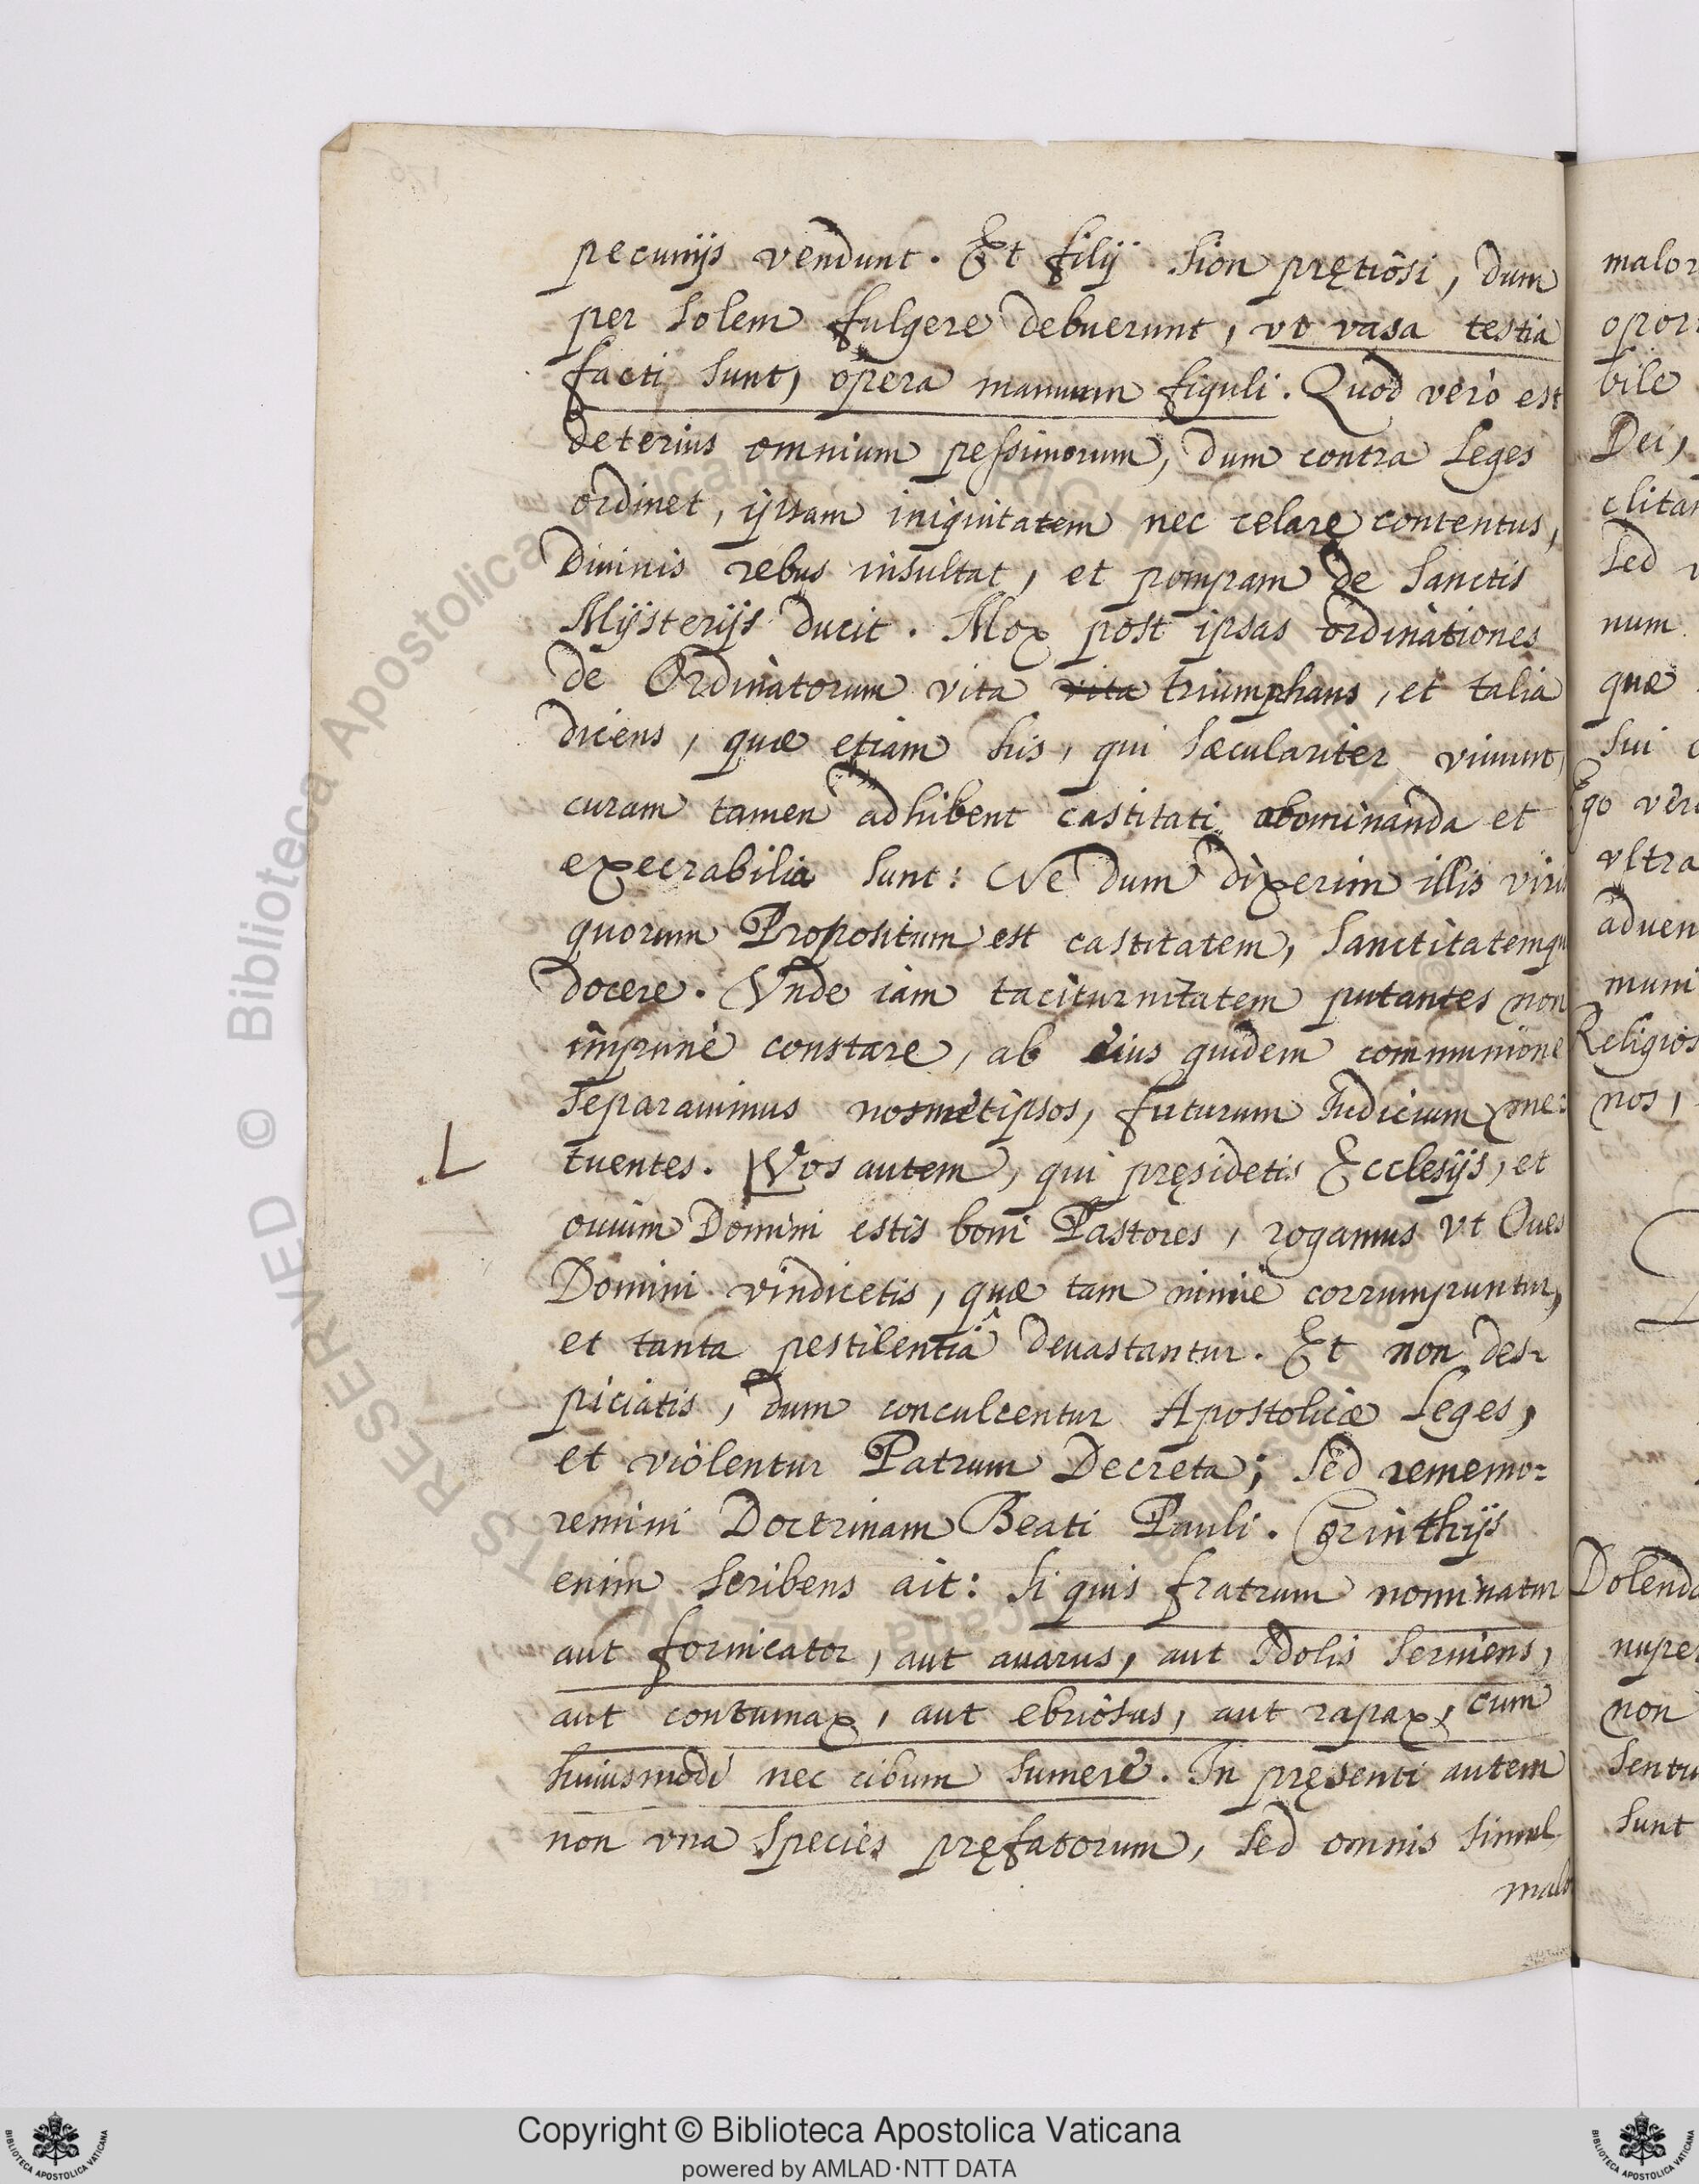 pecunijs vendunt. Et filij Sion prętiosi, dum
per Solem fulgere debuerunt, vt vasa testia
facti sunt, opera manuum figuli. Quod verò est
deterius omnium pessimorum, dum contra Leges
ordinet, ipsam iniquitatem nec celare contentus,
Diuinis rebus insultat, et pompam de Sanctis
Mijsterijs ducit. Mox post ipsas ordinationes
de Ordinatorum vita vita triumphans, et talia
dicens, quæ etiam his, qui sæculariter viuunt,
curam tamen adhibent castitati abominanda et
execrabilia sunt: Ne dum dixerim illis viris
quorum Propositum est castitatem, Sanctitatemqu
docere. Vnde iam taciturnitatem putantes non
impunè constare, ab eius quidem communione
separauimus nosmetipsos, futurum Iudicium me=
.L tuentes. Vos autem, qui pręsidetis Ecclesijs, et
ouium Domini estis boni Pastores, rogamus vt Oues
Domini vindicetis, quæ tam nimiè corrumpuntur,
et tanta pestilentiâ deuastantur. Et non des-
piciatis, dum conculcentur Apostolicæ Leges,
et violentur Patrum Decreta; Sed rememo=
remini Doctrinam Beati Pauli. Corinthijs
enim scribens ait: Si quis fratrum nominatur
aut fornicator, aut auarus, aut Idolis seruiens,
aut contumax, aut ebriosus, aut rapax, cum
huiusmodi nec cibum sumere. In pręsenti autem
non vna species pręfatorum, sed omnis simul
malo
malor
opor
bile
Dei,
clitan
Sed
num
quæ
sui
Ego verò
vltra
aduen
muni
Religios
nos,
Dolend
nuper
non
Sentu
Sunt
RESERVED © Biblioteca Apostolica
Copyright © Biblioteca Apostolica Vaticana
powered by AMLAD·NTT DATA
BIBLIOTECA APOSTOLICA VATICANA
BIBLIOTECA APOSTOLICA VATICANA